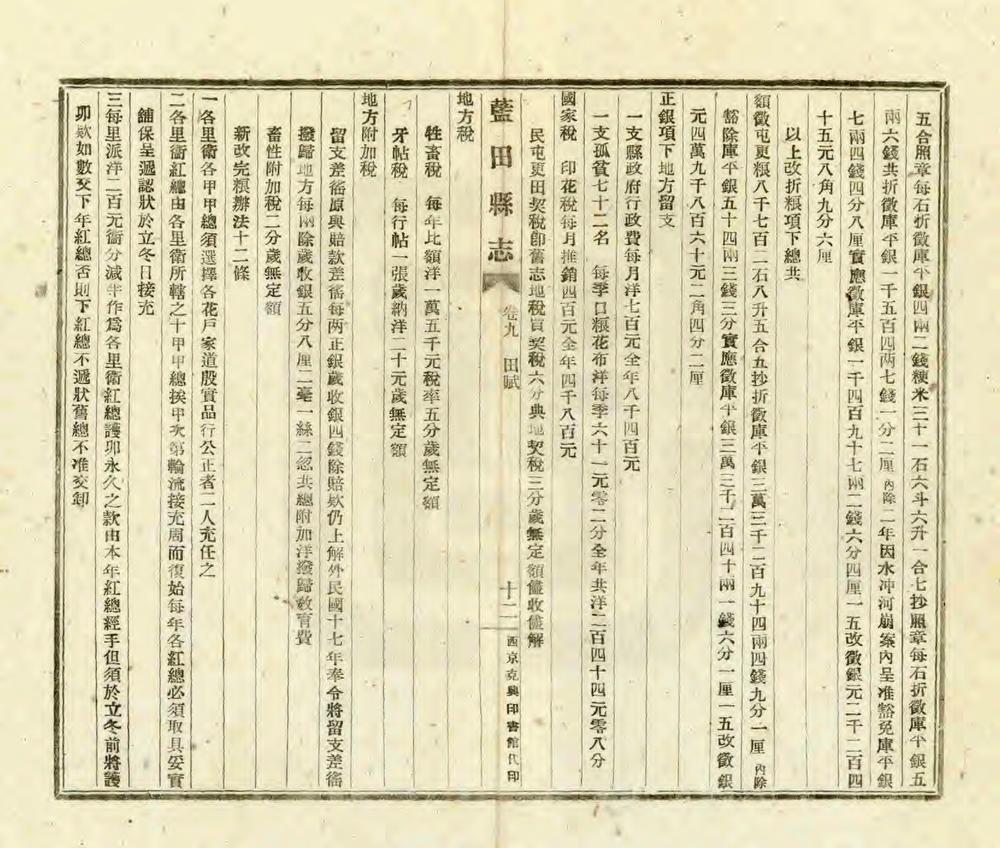 五合照章每石折徵庫平銀四兩二錢粳米三十一石六斗六升一合七抄照章每石折徵庫平銀五
兩六錢共折徵庫平銀一千五百四两七錢一分二厘內除二年因水冲河崩案內呈准豁免庫平銀
七兩四錢四分八厘實應徵庫平銀一千四百九十七兩二錢六分四厘一五改徵銀元二千二百四
十五元八角九分六厘
以上改折粮項下總共
額徵屯更粮八千七百二石八升五合五抄折徵庫平銀三萬三千二百九十四兩四錢九分一厘內除
豁除庫平銀五十四兩三錢三分實應徵庫平銀三萬三千二百四十兩一錢六分一厘一五改徵銀
元四萬九千八百六十元二角四分二厘
正銀項下地方留支
一支縣政府行政費每月洋七百元全年八千四百元
一支孤貧七十二名 每季口粮花布洋每季六十一元零二分全年共洋二百四十四元零八分
國家稅 印花稅每月推銷四百元全年四千八百元
民屯更田契稅即舊志地稅買契稅六分典地契稅三分歲無定額儘收儘解
藍田縣志 卷九 田賦 十二 西京克興印書館代印
地方稅
牲畜稅 每年比額洋一萬五千元稅率五分歲無定額
牙帖稅 每行帖一張歲納洋二十元歲無定額
地方附加稅
留支差徭原與賠款差徭每两正銀歲收銀四錢除賠欵仍上解外民國十七年奉令將留支差徭
撥歸地方每兩除歲收銀五分八厘二毫一絲二忽共總附加洋撥歸教育費
畜牲附加稅二分歲無定額
新改完粮辦法十二條
一各里衛各甲甲總須選擇各花戶家道殷實品行公正者二人充任之
二各里衛紅總由各里衛所轄之十甲甲總挨甲次第輪流接充周而復始每年各紅總必須取具妥實
舖保呈遞認狀於立冬日接充
三每里派洋二百元衛分減半作爲各里衛紅總護卯永久之款由本年紅總經手但須於立冬前將護
卯欵如數交下年紅總否則下紅總不遞狀舊總不准交卸